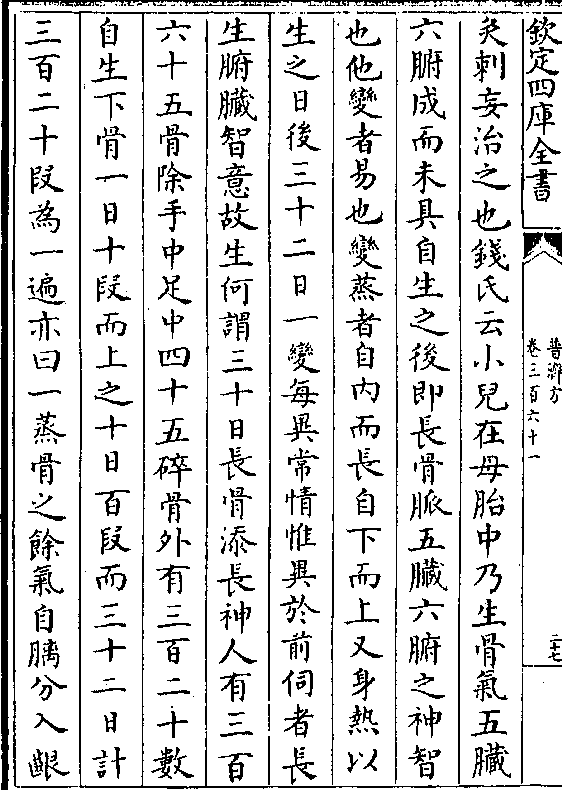 欽定四庫全書
普濟方
卷三百六十一
二十七
灸刺妄治之也錢氏云小兒在母胎中乃生骨氣五臟
六腑成而未具自生之後即長骨脈五臟六腑之神智
也他變者易也變蒸者自內而長自下而上又身熱以
生之日後三十二日一變每異常情惟異於前何者長
生腑臟智意故生何謂三十日長骨添長神人有三百
六十五骨除手中足中四十五碎骨外有三百二十數
自生下骨一日十段而上之十日百段而三十二日計
三百二十段為一遍亦曰一蒸骨之餘氣自腦分入齦